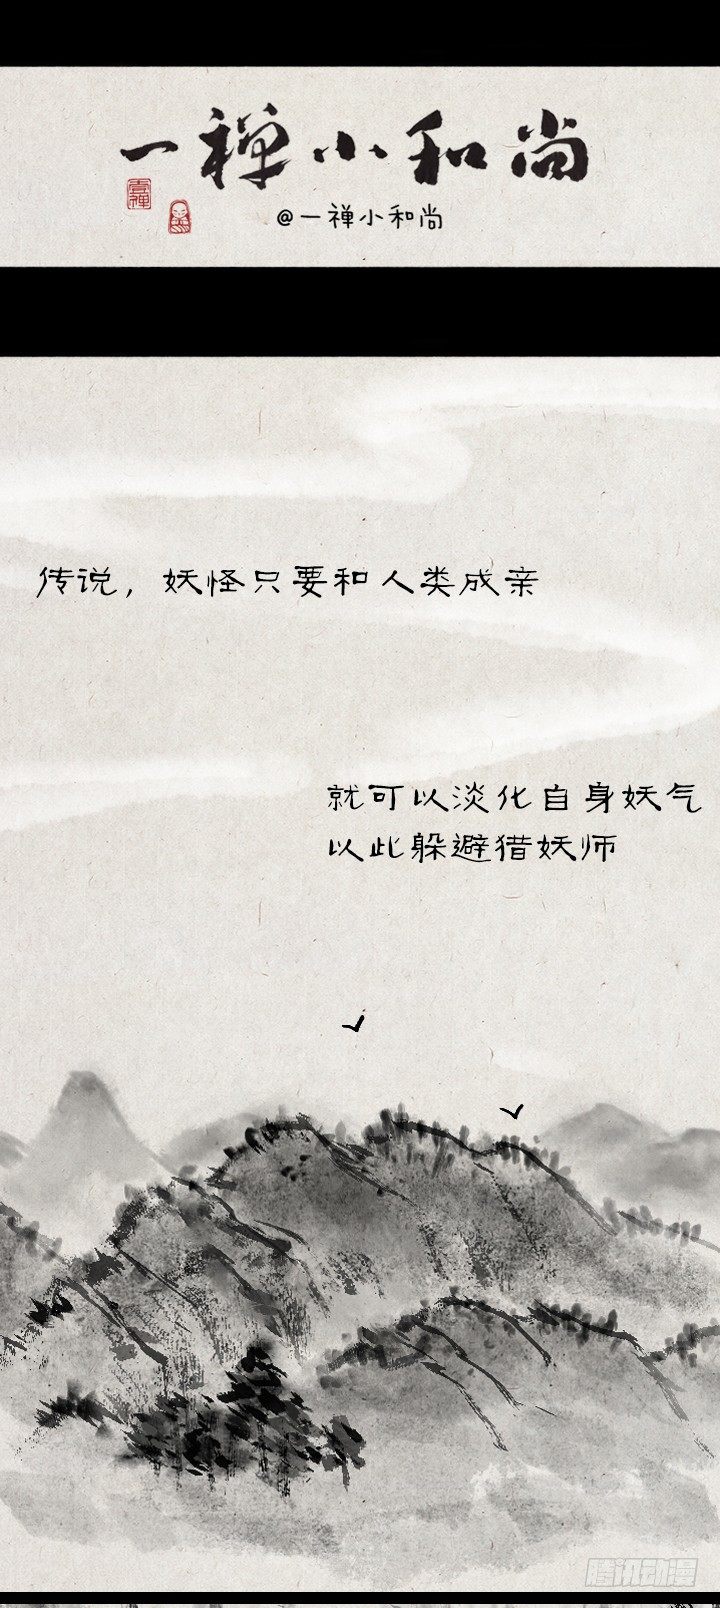 一禅小和尚
壹禅
@一禅小和尚
传说，妖怪只要和人类成亲
就可以淡化自身妖气
以此躲避猎妖师
腾讯动漫